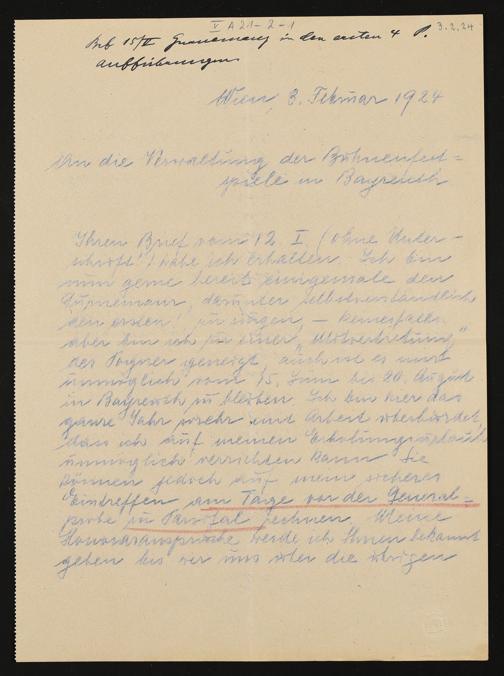 V A 21-2-1
3.2.24
15/II Gurnemanz in den ersten 4 P.
aufführungen
Wien, 3. Februar 1924
An die Verwaltung der Bühnenfest=
spiele in Bayreuth
Ihren Brief vom 12. I. (ohne Unter-
schrift!) habe ich erhalten. Ich bin
nun gerne bereit einigemale den
Gurnemanz, darunter selbstverständlich
den ersten! zu singen, – keinesfalls
aber bin ich zu einer „Mitvertretung"
des Pogner geneigt, auch ist es mir
unmöglich vom 15. Juni bis 20. August
in Bayreuth zu bleiben. Ich bin hier das
ganze Jahr mit Arbeit überbürdet,
dass ich auf meinen Erholungsurlaub
unmöglich verzichten kann. Sie
können jedoch auf mein sicheres
Eintreffen am Tage vor der General=
probe zu Parsifal rechnen. Meine
Honoraransprüche werde ich Ihnen bekannt
geben bis wir uns über die übrigen